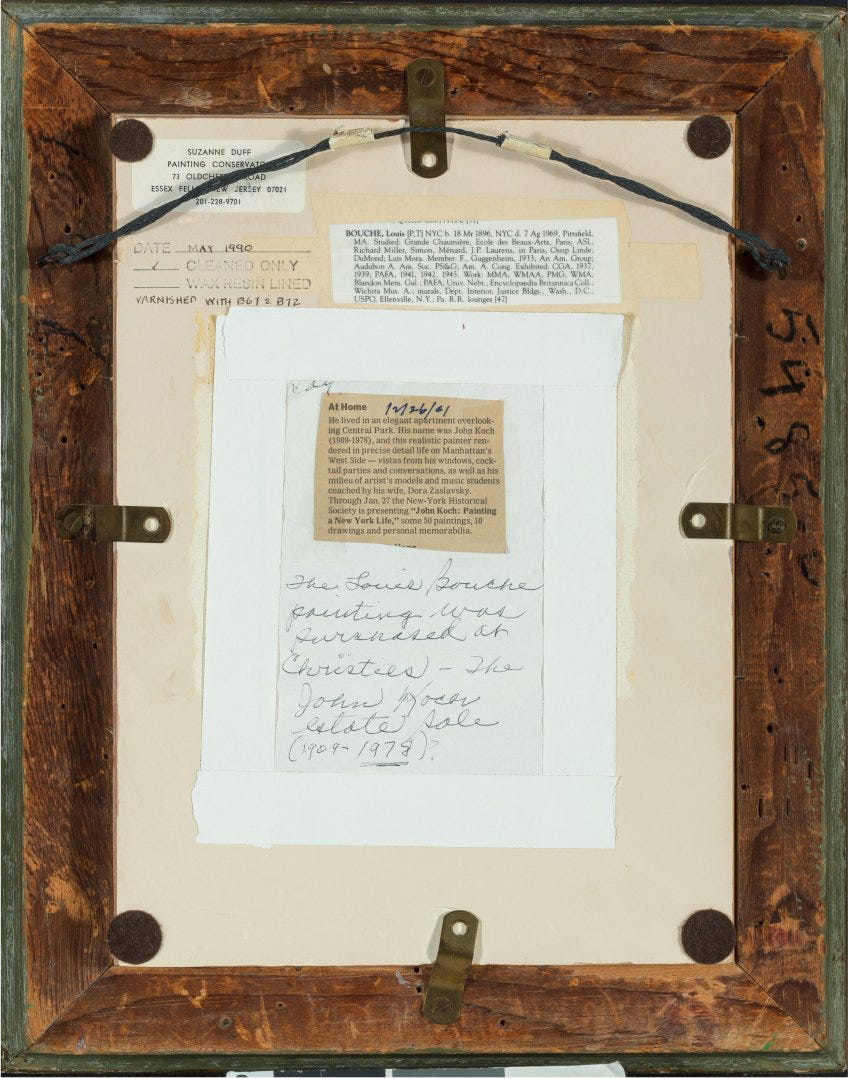 SUZANNE DUFF
PAINTING CONSERVATOR
73 OLDCHESTER ROAD
ESSEX FELLS, NEW JERSEY 07021
201-228-9701
DATE MAY 1990
✓ CLEANED ONLY
WAX RESIN LINED
VARNISHED WITH B67 & B72
BOUCHE, Louis [P,T] NYC b. 18 Mr 1896, NYC d. 7 Ag 1969, Pittsfield,
MA. Studied: Grande Chaumière, Ecole des Beaux-Arts, Paris; ASL;
Richard Miller, Simon, Ménard, J.P. Laurens, in Paris; Ossip Linde;
DuMond; Luis Mora. Member: F., Guggenheim, 1933; An Am. Group;
Audubon A. Am. Soc. PS&G; Am. A. Cong. Exhibited: CGA, 1937,
1939; PAFA, 1941, 1942, 1945. Work: MMA; WMAA; PMG; WMA;
Blandon Mem. Gal.; PAFA; Univ. Nebr.; Encyclopaedia Britannica Coll.;
Wichita Mus. A.; murals, Dept. Interior, Justice Bldgs., Wash., D.C.;
USPO, Ellenville, N.Y.; Pa. R.R. lounges [47]
At Home 12/26/01
He lived in an elegant apartment overlook-
ing Central Park. His name was John Koch
(1909-1978), and this realistic painter ren-
dered in precise detail life on Manhattan's
West Side — vistas from his windows, cock-
tail parties and conversations, as well as his
milieu of artist's models and music students
coached by his wife, Dora Zaslavsky.
Through Jan. 27 the New-York Historical
Society is presenting "John Koch: Painting
a New York Life," some 50 paintings, 10
drawings and personal memorabilia.
The Louis Bouche
painting was
purchased at
Christies - The
John Koch
estate sale
(1909-1978)?